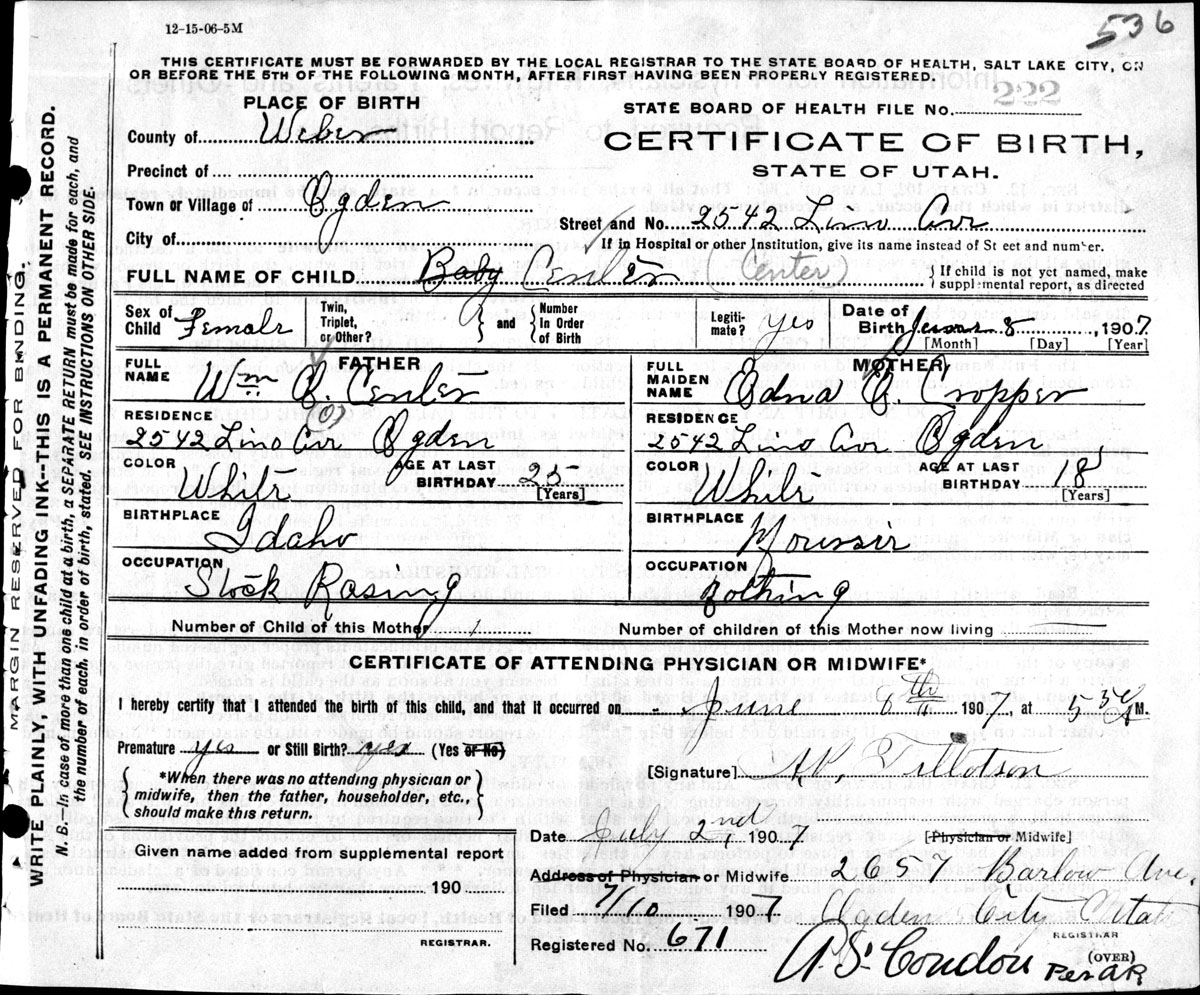 12-15-06-5M
536
THIS CERTIFICATE MUST BE FORWARDED BY THE LOCAL REGISTRAR TO THE STATE BOARD OF HEALTH, SALT LAKE CITY, ON
OR BEFORE THE 5TH OF THE FOLLOWING MONTH, AFTER FIRST HAVING BEEN PROPERLY REGISTERED.
PLACE OF BIRTH
STATE BOARD OF HEALTH FILE No. 222
County of Weber
CERTIFICATE OF BIRTH,
STATE OF UTAH.
Precinct of
Town or Village of Ogden
Street and No. 2542 Ave
City of
If in Hospital or other Institution, give its name instead of St eet and number.
FULL NAME OF CHILD Baby (Center)
If child is not yet named, make
supplemental report, as directed
Sex of Child Female
Twin, Triplet, or Other?
and
Number In Order of Birth
Legiti-mate? yes
Date of Birth 8, 1907
[Month] [Day] [Year]
FATHER
FULL NAME Wm
MOTHER
FULL MAIDEN NAME Edna E. Cropper
RESIDENCE
2542 Ogden
RESIDENCE
2542 Ogden
COLOR White
AGE AT LAST BIRTHDAY 25
[Years]
COLOR White
AGE AT LAST BIRTHDAY 18
[Years]
BIRTHPLACE
Idaho
BIRTHPLACE
OCCUPATION
Stock Rasing
OCCUPATION
Nothing
Number of Child of this Mother 1
Number of children of this Mother now living
CERTIFICATE OF ATTENDING PHYSICIAN OR MIDWIFE*
I hereby certify that I attended the birth of this child, and that it occurred on June 1907, at M.
Premature yes or Still Birth? yes (Yes or No)
*When there was no attending physician or
midwife, then the father, householder, etc.,
should make this return.
[Signature] Tillotson
Date July 2nd 1907
[Physician or Midwife]
Given name added from supplemental report
190
REGISTRAR.
Address of Physician or Midwife. 2657 Barlow Ave.
Filed 7/10 1907 Ogden City Utah
REGISTRAR
Registered No. 671
A. S. Condon
(OVER)
Per AR
MARGIN RESERVED FOR BINDING.
WRITE PLAINLY, WITH UNFADING INK-THIS IS A PERMANENT RECORD.
N. B.—In case of more than one child at a birth, a SEPARATE RETURN must be made for each, and
the number of each, in order of birth, stated. SEE INSTRUCTIONS ON OTHER SIDE.